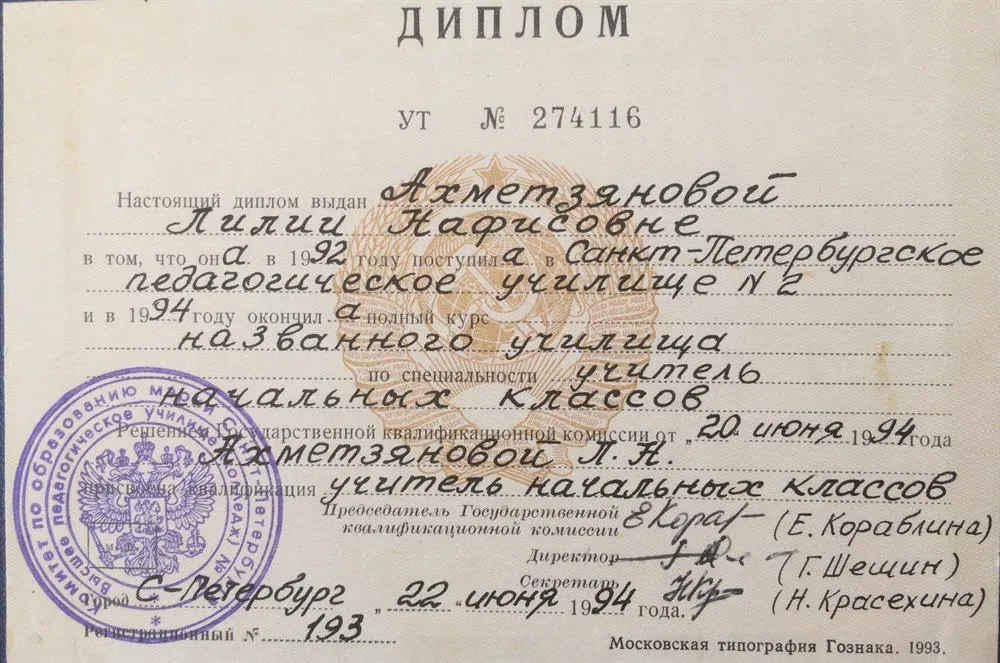 ДИПЛОМ
УТ № 274116
Настоящий диплом выдан Ахметзяновой
Лилии Нафисовне
в том, что она в 1992 году поступила в Санкт-Петербургское
педагогическое училище N 2
и в 1994 году окончила полный курс
названного училища
по специальности учитель
начальных классов
Решением Государственной квалификационной комиссии от „20“ июня 1994 года
Ахметзяновой Л. Н.
присвоена квалификация учитель начальных классов
Председатель Государственной
квалификационной комиссии (Е. Кораблина)
Директор (Г. Шешин)
Секретарь (Н. Красехина)
Город С-Петербург „22“ июня 1994 года.
Регистрационный № 193
Московская типография Гознака. 1993.
Комитет по образованию мэрии Санкт-Петербурга
Высшее педагогическое училище